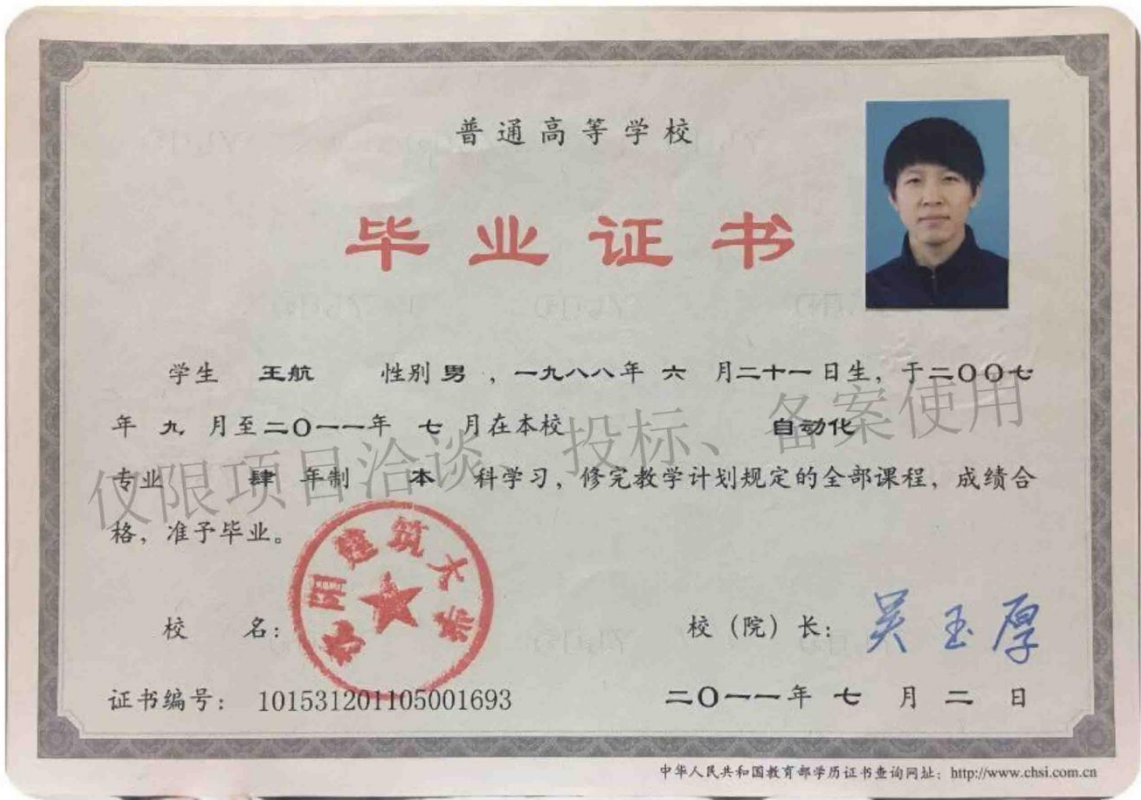 普通高等学校
毕业证书
学生 王航 性别 男 ，一九八八年 六 月二十一日生，于二〇〇七
年 九 月至二〇一一年 七 月在本校 自动化
专业 肆 年制 本 科学习，修完教学计划规定的全部课程，成绩合
格，准予毕业。
仅限项目洽谈、投标、备案使用
沈阳建筑大学
校 名：
校（院）长：吴玉厚
证书编号：101531201105001693
二〇一一年 七 月 二 日
中华人民共和国教育部学历证书查询网址：http://www.chsi.com.cn